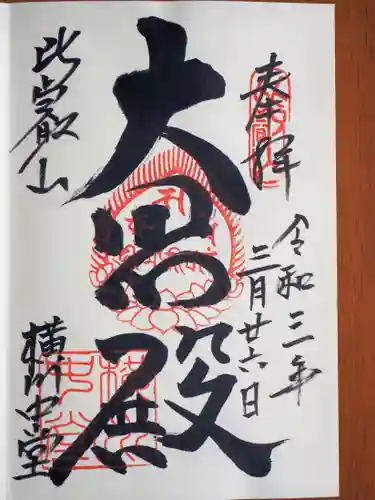 奉拝
令和三年
三月廿六日
大悲殿
比叡山
横川中堂